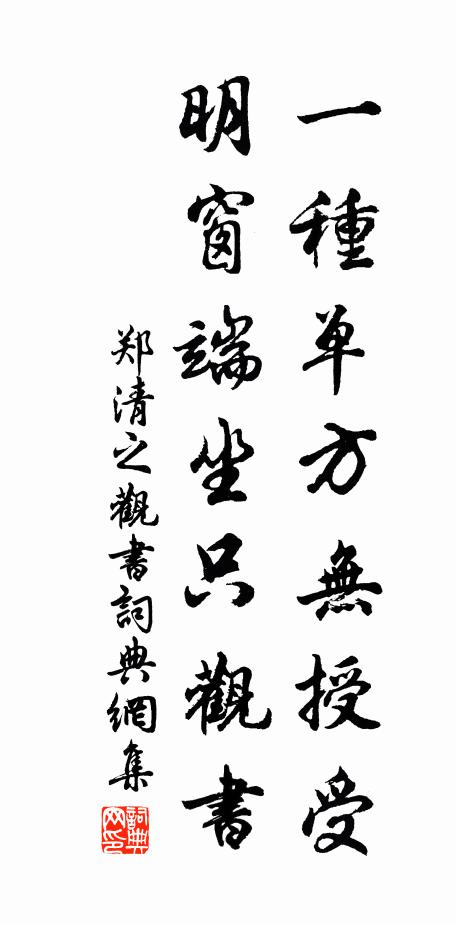 一種单方無授受
明窗端坐只觀書
郑清之觀書詞典網集
詞典
网印